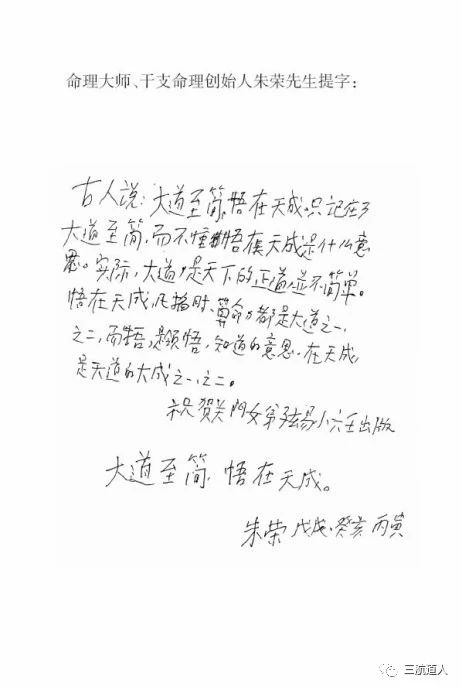 命理大师、干支命理创始人朱荣先生提字：
古人说：大道至简，悟在天成。只记住了
大道至简，而不懂悟在天成是什么意
思。实际，大道是天下的正道，并不简单。
悟在天成，风播时、算命都是大道之一、
之二，而悟，是领悟，知道的意思，在天成
是天道的大成之一、之二。
祝贺关门女弟弦易小六壬出版
大道至简，悟在天成。
朱荣 戊戌、癸亥 丙寅
三流道人